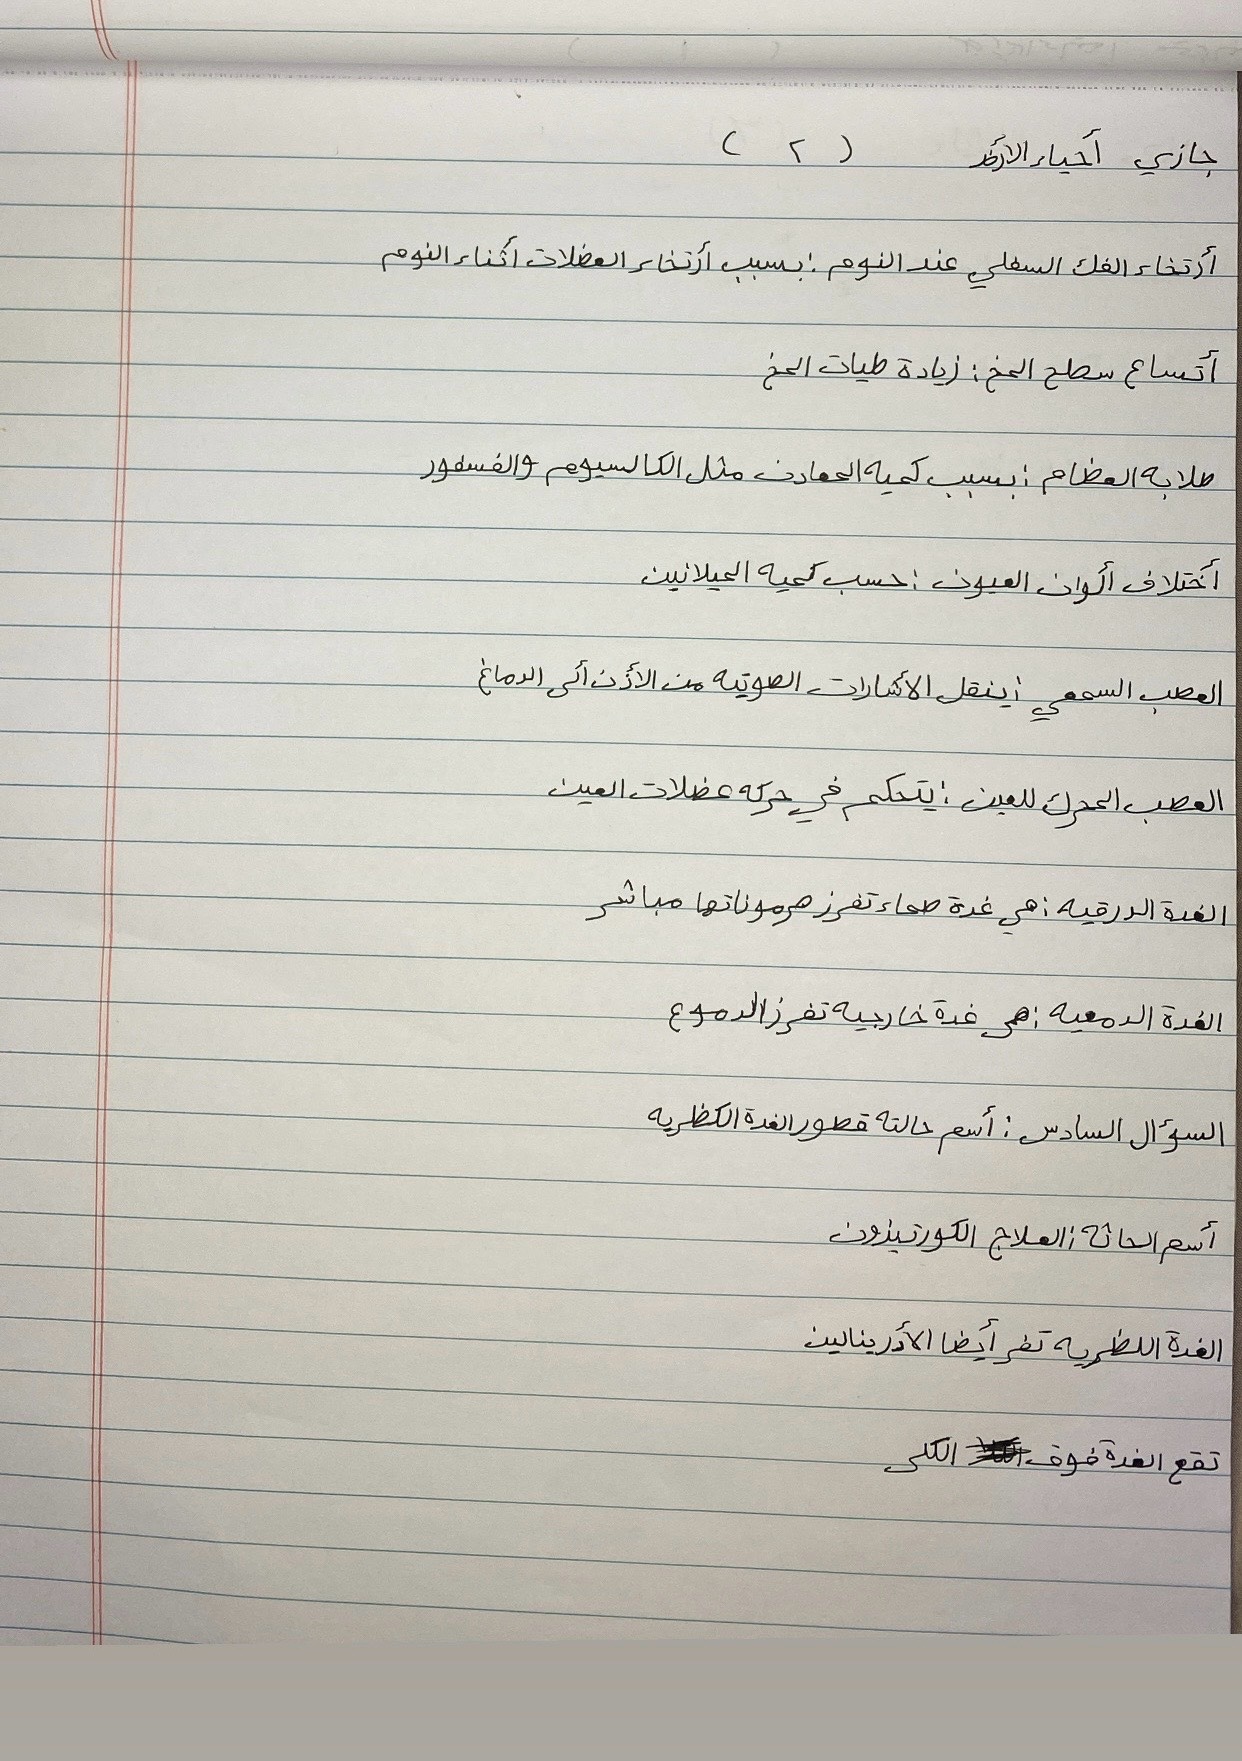 جازي أحياء ( ٢ )
أرتخاء الفك السفلي عند النوم : بسبب أرتخاء العضلات أثناء النوم
أتساع سطح المخ : زيادة طيات المخ
صلابه العظام : بسبب كميه المعادن مثل الكالسيوم والفسفور
أختلاف ألوان العيون : حسب كميه الميلانين
العصب السمعي : ينقل الأشارات الصوتيه من الأذن ألى الدماغ
العصب المحرك للعين : يتحكم في حركه عضلات العين
الغدة الدرقيه : هي غدة صماء تفرز هرموناتها مباشر
الغدة الدمعيه : هي غدة خارجيه تفرز الدموع
السؤال السادس : أسم حالته قصور الغدة الكظريه
أسم الحاثة : العلاج الكورتيزون
الغدة اللظريه تفر أيضا الأدرينالين
تقع الغدة فوق الكلى